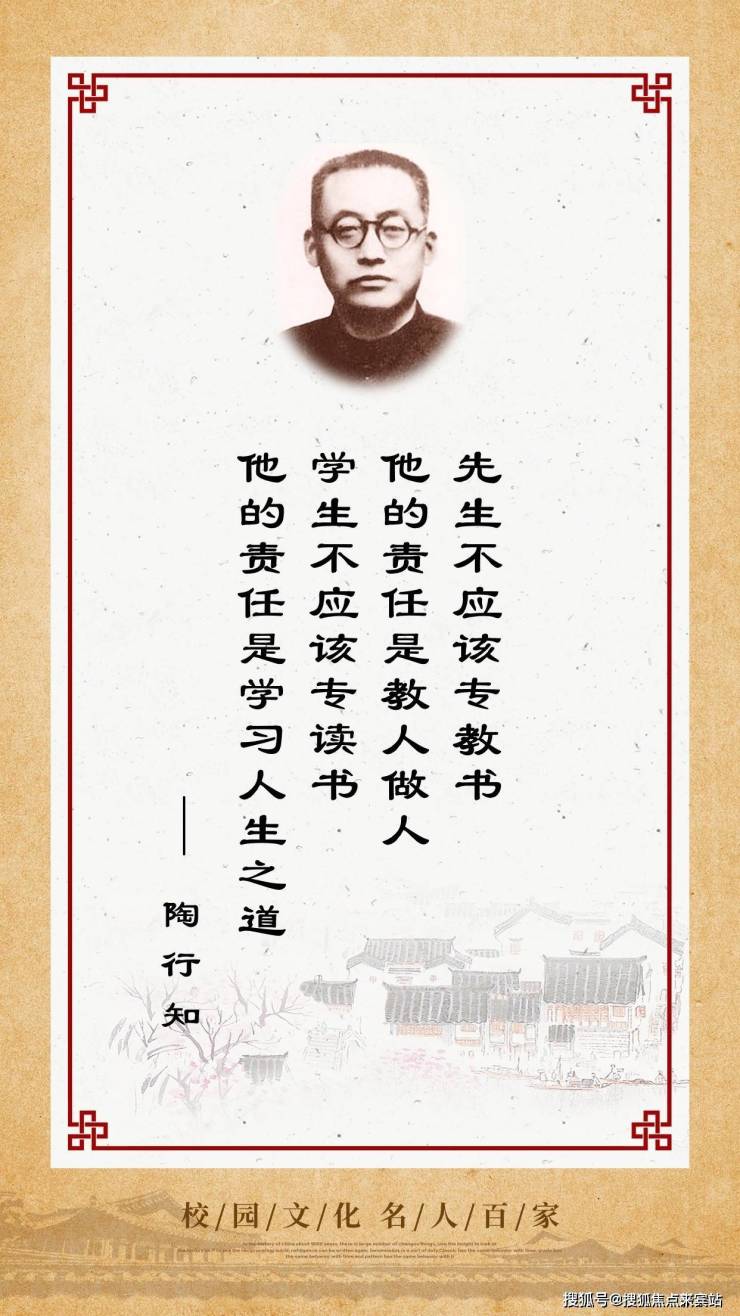 先生不应该专教书
他的责任是教人做人
学生不应该专读书
他的责任是学习人生之道
——陶行知
校/园/文/化 名/人/百/家
搜狐号@搜狐焦点来宾站